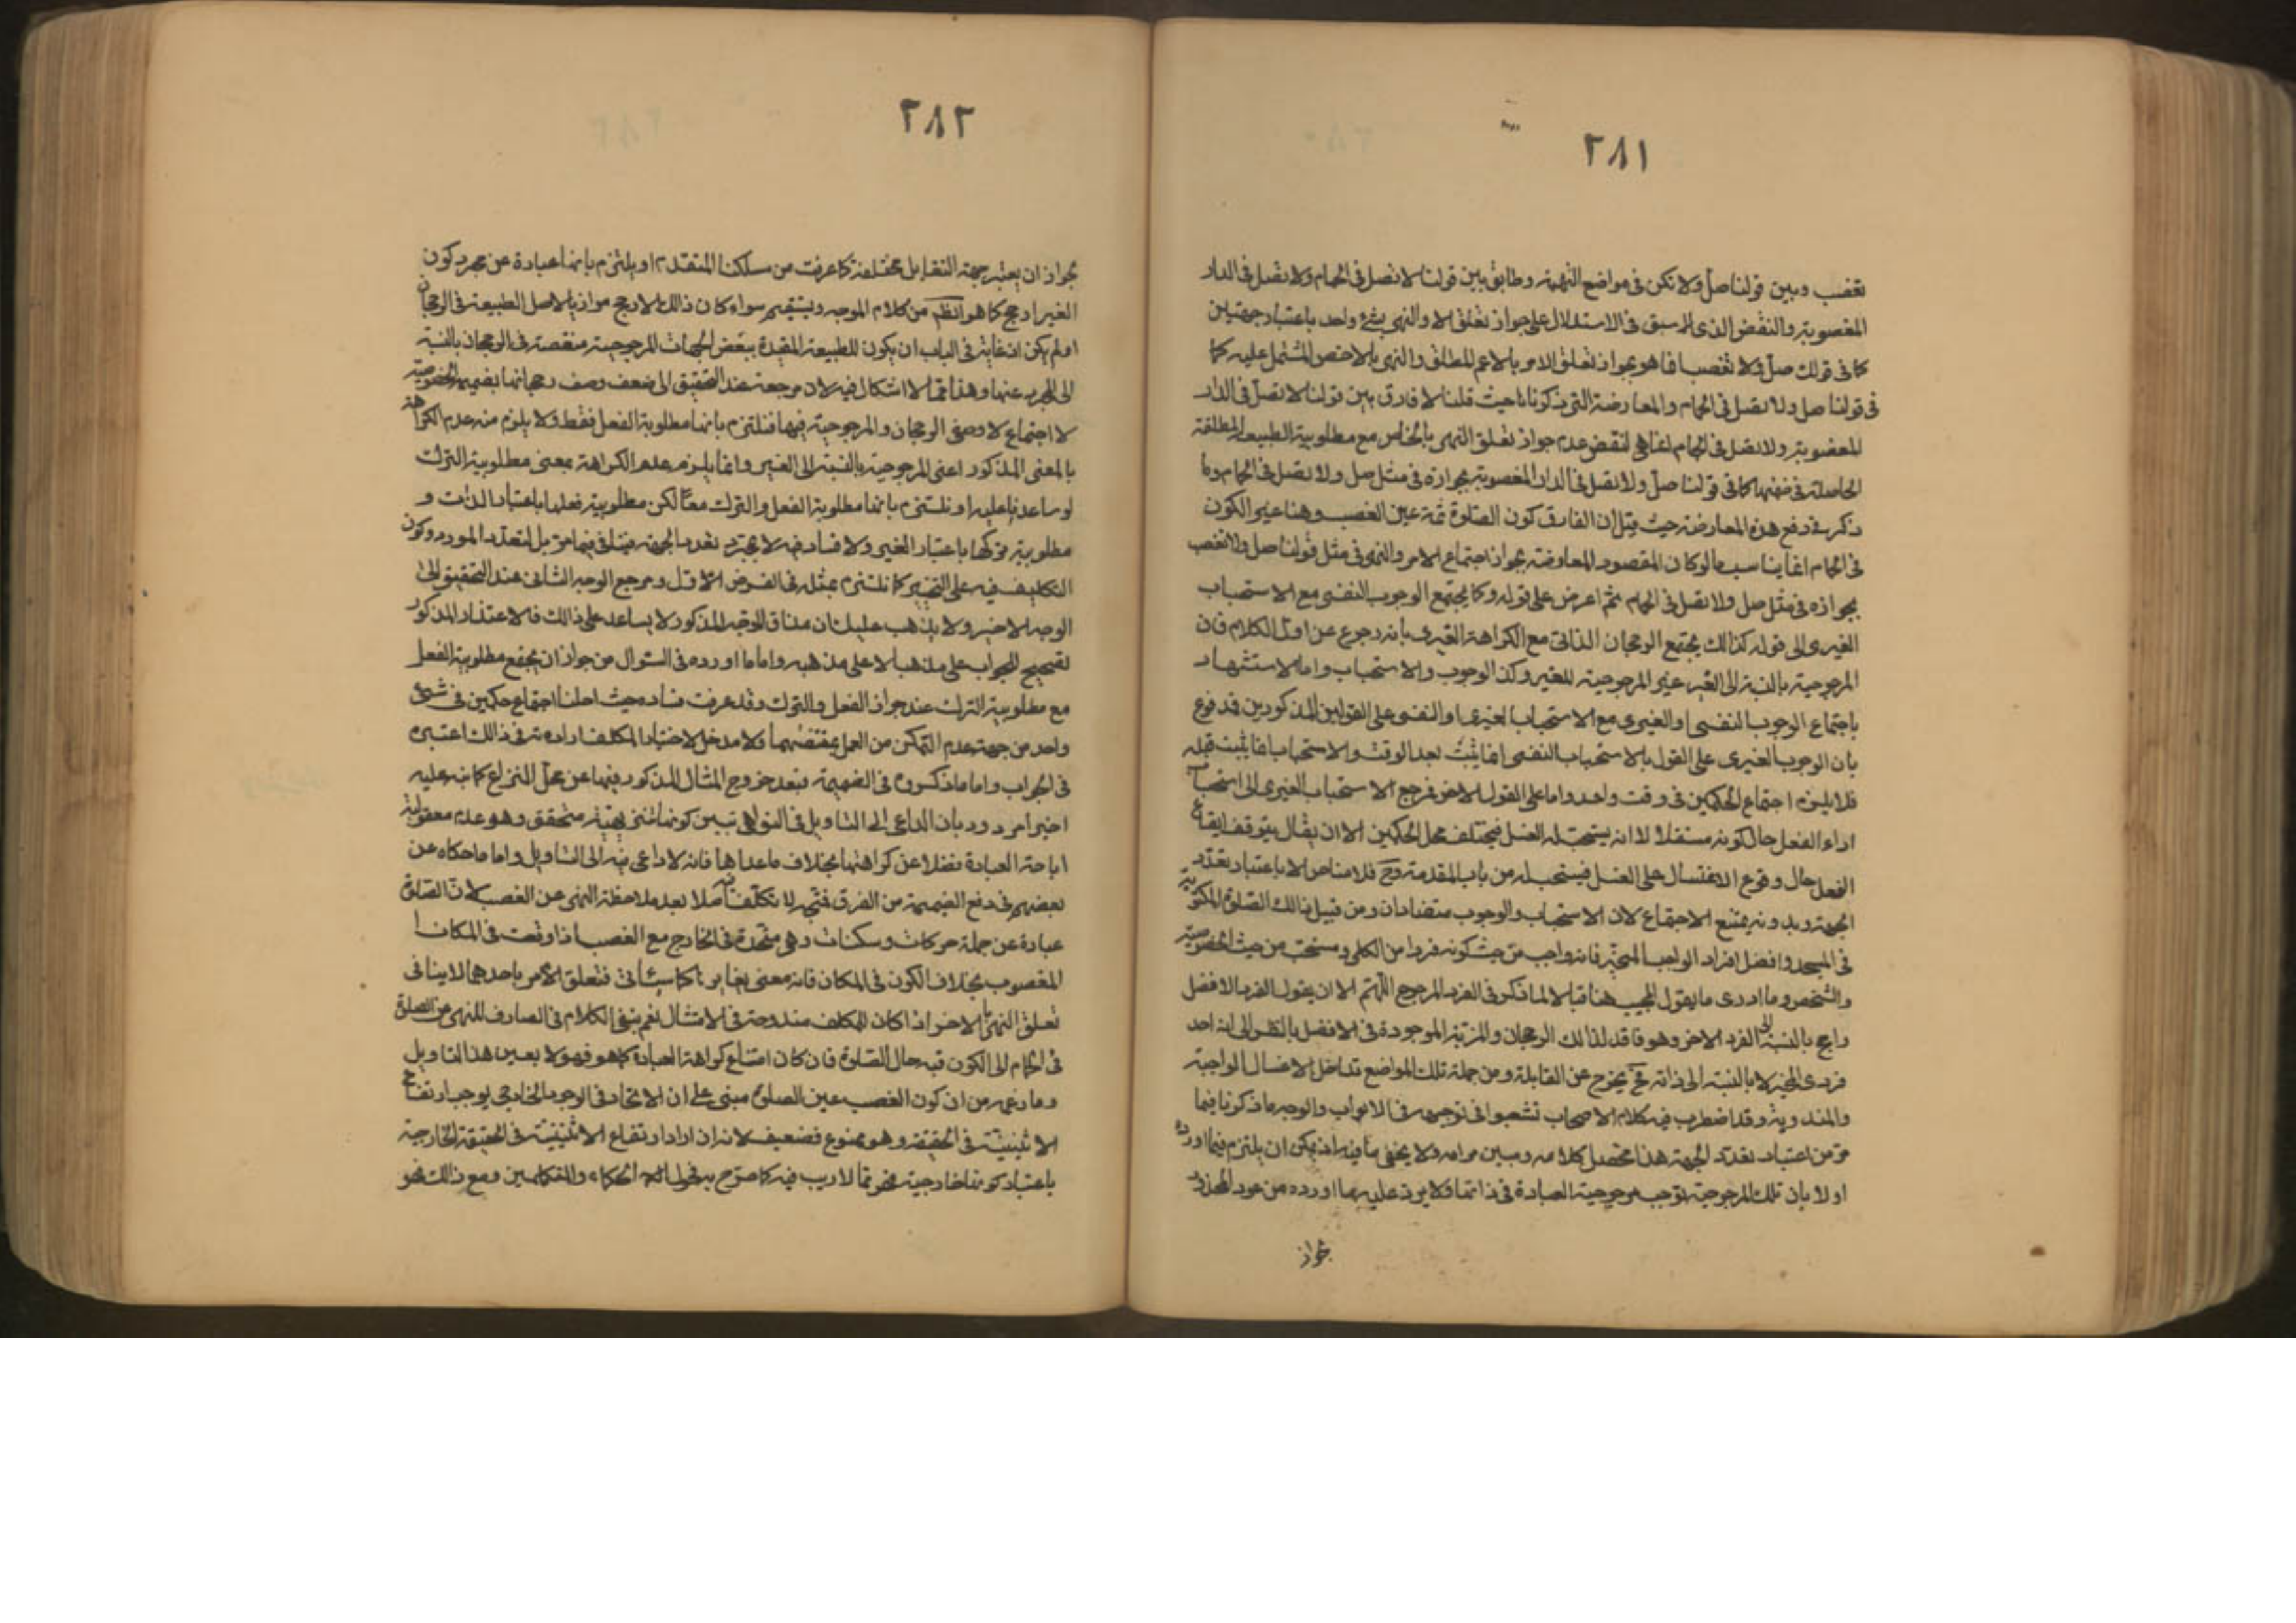 ٢٨١
تغصب وبين قولنا صل ولا تكن فى مواضع التهمة وطابق بين قولنا لا تصل فى الحمام ولا تصل فى الدار
المغصوبة والنقض الذى سبق فى الاستدلال على جواز تعلق الامر والنهى بشئ واحد باعتبار جهتين
كما فى قولك صل ولا تغصب انما هو بجواز تعلق الامر بالاعم المطلق والنهى بالاخص المشتمل عليه كما
فى قولنا صل ولا تصل فى الحمام والمعارضة التى ذكرناها حيث قلنا لا فارق بين قولنا لا تصل فى الدار
المغصوبة ولا تصل فى الحمام انما هى لنقض عدم جواز تعلق النهى بالخاص مع مطلوبية الطبيعة المطلقة
الحاصلة فى ضمنها كما فى قولنا صل ولا تصل فى الدار المغصوبة بجوازه فى مثل صل ولا تصل فى الحمام وما
ذكر فى دفع هذه المعارضة حيث قيل ان الفارق كون الصلوة ثمة عين الغصب وهنا غير الكون
فى الحمام انما يناسب ما لو كان المقصود المعاوضة بجواز اجتماع الامر والنهى فى مثل قولنا صل ولا تغصب
بجوازه فى مثل صل ولا تصل فى الحمام ثم اعرض على قوله وكما يجتمع الوجوب النفسى مع الاستحباب
الغيرى الى قوله كذلك يجتمع الرجحان الذاتى مع الكراهة الغيرى بانه رجوع عن اول الكلام فان
المرجوحية بالنسبة الى الغير غير المرجوحية للغير وكذا الوجوب والاستحباب واما الاستشهاد
باجتماع الوجوب النفسى او الغيرى مع الاستحباب الغيرى او النفسى على القولين المذكورين فمدفوع
بان الوجوب الغيرى على القول بالاستحباب النفسى انما يثبت بعد الوقت والاستحباب انما يثبت قبله
فلا يلزم اجتماع الحكمين فى وقت واحد واما على القول الاخر فرجع الاستحباب الغيرى الى استحباب
اداء الفعل حال كونه مستقلا لا انه يستحب له الغسل فيختلف محل الحكمين الا ان يقال يتوقف ايقاع
الفعل حال وقوع الاغتسال على الغسل فيستحب له من باب المقدمة وح فلا مناص الا باعتبار تعدد
الجهة وبدونه يمتنع الاجتماع لان الاستحباب والوجوب متضادان ومن قبيل ذالك الصلوة المكتوبة
فى المسجد وافضل افراد الواجب المخير فانه واجب من حيث كونه فردا من الكلى ومستحب من حيث الخصوصية
والتشخص وما ادرى ما يقول المجيب هنا قبالا لما ذكر فى الفرد المرجوح اللهم الا ان يقول الفرد الافضل
راجح بالنسبة الى الفرد الاخر وهو فاقد لذالك الرجحان والمزية الموجودة فى الافضل بالنظر الى انه احد
فردى المخير لا بالنسبة الى ذاته فح يخرج عن القابلة ومن جملة تلك المواضع تداخل الاغسال الواجبة
والمندوبة وقد اضطرب فيه كلام الاصحاب تشعبوا فى توجيهه فى الابواب والوجه ما ذكرنا فيما
مر من اعتبار تعدد الجهة هذا محصل كلامه ومبين مرامه ولا يخفى ما فيه اذ يمكن ان يلتزم فيما اورده
اولا بان تلك المرجوحية توجب مرجوحية العبادة فى ذاتها ولا يرد عليه ما اورده من عود المحذور
جواز
٢٨٢
بجواز ان يعتبر جهة التقابل مختلفة كما عرفت من مسلكنا المتقدم او يلتزم بانها عبادة عن مجرد كون
الغير ارجح كما هو الظم من كلام الموجه ويستقيم سواء كان ذلك الارجح مواز بالاصل الطبيعة فى الرجحان
او لم يكن اذ غاية فى الباب ان يكون للطبيعة المقيدة ببعض الجهات المرجوحية منقصة فى الرجحان بالنسبة
الى المجرد عنها وهذا مما لا اشكال فيه لان مرجعه عند التحقيق الى ضعف وصف رجحانها بضميمة الخصوصية
لا اجتماع لا وصفى الرجحان والمرجوحية فيها فنلتزم بانها مطلوبة الفعل فقط ولا يلزم منه عدم الكراهة
بالمعنى المذكور اعنى المرجوحية بالنسبة الى الغير وانما يلزم عدم الكراهة بمعنى مطلوبية الترك
لو ساعدنا عليه او نلتزم بانها مطلوبة الفعل والترك معا لكن مطلوبية فعلها باعتبار الذات و
مطلوبية تركها باعتبار الغير ولا فساد فيه لا بمجرد تعدد الجهة فيتأتى فيما مر بل لتعدد المورد وكون
التكليف فيه على التخيير كما نلتزم بمثله فى الفرض الاول ومرجع الوجه الثانى عند التحقيق الى
الوجه الاخير ولا يذهب عليك ان مذاق الموجه المذكور لا يساعد على ذالك فالاعتذار المذكور
لتصحيح الجواب على مذهبنا لا على مذهبه واما ما اورده فى السؤال من جواز ان يجتمع مطلوبية الفعل
مع مطلوبية الترك عند جواز الفعل والترك وقد عرفت فساده حيث احلنا اجتماع حكمين فى شئ
واحد من جهة عدم التمكن من العمل بمقتضيهما ولا مدخل لاختيار المكلف ارادته فى ذالك اعتبره
فى الجواب واما ما ذكروه فى الضميمة فبعد خروج المثال المذكور فيها عن محل النزاع كما نبه عليه
اخيرا مردود بان الداعى الى التاويل فى النواهى تبين كونها تنزيهية متحقق وهو عدم معقولية
اباحة العبادة فضلا عن كراهتها بخلاف ما عداها فانه لا داعى فيه الى التاويل واما ما حكاه عن
بعضهم فى دفع الضميمة من الفرق فمتجه لا تكلف فيه اصلا بعد ملاحظة النهى عن الغصب لان الصلوة
عبادة عن جملة حركات وسكنات وهى متحدة فى الخارج مع الغصب اذا وقعت فى المكان
المغصوب بخلاف الكون فى المكان فانه معنى يغاير كما سيأتى فتعلق الامر باحدهما لا ينافى
تعلق النهى بالاخر اذا كان للمكلف مندوحة فى الامتثال نعم ينبغى الكلام فى الصارف للنهى عن الصلوة
فى الحمام الى الكون فيه حال الصلوة فان كان امتناع كراهة العبادة كما هو فهو لا بعين هذا التاويل
وما زعمه من ان كون الغصب عين الصلوة مبنى على ان الاتحاد فى الوجود الخارجى يوجب ارتفاع
الاثنينية فى الحقيقة وهو ممنوع فضعيف لانه ان اراد ارتفاع الاثنينية فى الحقيقة الخارجية
باعتبار كونها خارجية فهو مما لا ريب فيه كما صرح به فحول الحكماء والمتكلمين ومع ذالك فهو